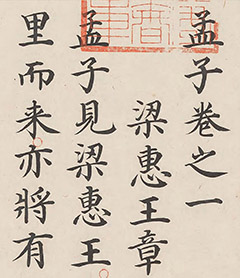 孟子卷之一
梁惠王章
孟子見梁惠王
里而来亦將有